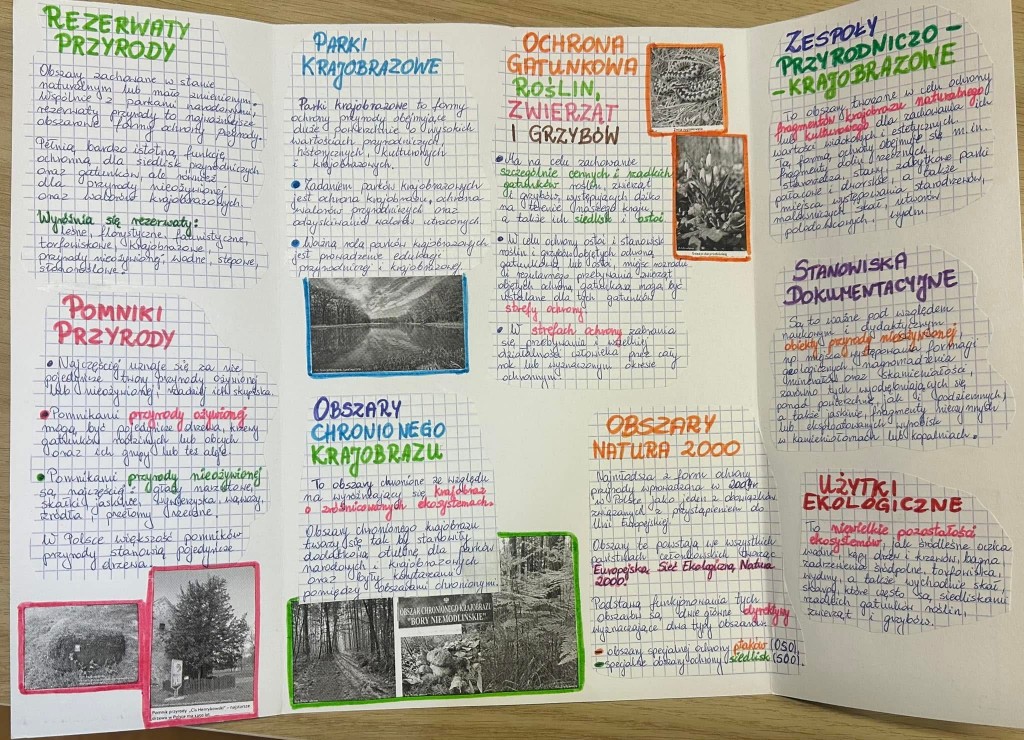 REZERWATY
PRZYRODY
Obszary zachowane w stanie
naturalnym lub mało zmienionym.
Wspólnie z parkami narodowymi,
rezerwaty przyrody to najważniejsze
obszarowe formy ochrony przyrody.
Pełnią bardzo istotną funkcję
ochronną dla siedlisk przyrodniczych
oraz gatunków, ale również
dla przyrody nieożywionej
oraz walorów krajobrazowych.
Wyróżnia się rezerwaty:
leśne, florystyczne, faunistyczne,
torfowiskowe, krajobrazowe,
przyrody nieożywionej, wodne, stepowe,
słonoroślowe.
POMNIKI
PRZYRODY
• Najczęściej uznaje się za nie
pojedyncze twory przyrody ożywionej
lub nieożywionej, rzadziej ich skupiska.
• Pomnikami przyrody ożywionej
mogą być pojedyncze drzewa, krzewy
gatunków rodzimych lub obcych
oraz ich grupy lub też aleje
• Pomnikami przyrody nieożywionej
są najczęściej: głazy narzutowe,
skałki, jaskinie, wywierzyska, wąwozy,
źródła, przełomy rzeczne.
W Polsce większość pomników
przyrody stanowią pojedyncze
drzewa.
Pomnik przyrody „Cis Henrykowski" – najstarsze
drzewo w Polsce ma 1200 lat
PARKI
KRAJOBRAZOWE
Parki krajobrazowe to formy
ochrony przyrody obejmujące
duże powierzchnie o wysokich
wartościach przyrodniczych,
historycznych, kulturowych
i krajobrazowych.
• Zadaniem parków krajobrazowych
jest ochrona krajobrazu, ochrona
walorów przyrodniczych oraz
odzyskiwanie walorów utraconych.
• Ważną rolą parków krajobrazowych
jest prowadzenie edukacji
przyrodniczej i krajobrazowej.
OBSZARY
CHRONIONEGO
KRAJOBRAZU
To obszary chronione ze względu
na wyróżniający się krajobraz
o zróżnicowanych ekosystemach.
Obszary chronionego krajobrazu
tworzy się tak by stanowiły
dodatkową otulinę dla parków
narodowych i krajobrazowych
oraz były korytarzami
pomiędzy obszarami chronionymi.
OBSZAR CHRONIONEGO KRAJOBRAZU
"BORY NIEMODLIŃSKIE"
OCHRONA
GATUNKOWA
ROŚLIN,
ZWIERZĄT
I GRZYBÓW
• Ma na celu zachowanie
szczególnie cennych i rzadkich
gatunków roślin, zwierząt
i grzybów, występujących dziko
na terenie naszego kraju,
a także ich siedlisk i ostoi
• W celu ochrony ostoi i stanowisk
roślin i grzybów objętych ochroną
gatunkową lub ostoi, miejsc rozrodu
i regularnego przebywania zwierząt
objętych ochroną gatunkową mogą być
ustalane dla tych gatunków
strefy ochrony.
• W strefach ochrony zabrania
się przebywania i wszelkiej
działalności człowieka przez cały
rok lub wyznaczonym okresie
ochronnym.
OBSZARY
NATURA 2000
Najmłodsza z form ochrony
przyrody wprowadzona w 2004r.
w Polsce jako jeden z obowiązków
związanych z przystąpieniem do
Unii Europejskiej.
Obszary te powstają we wszystkich
państwach członkowskich tworząc
Europejską Sieć Ekologiczną Natura
2000.
Podstawą funkcjonowania tych
obszarów są dwie główne dyrektywy
wyznaczające dwa typy obszarów:
- obszary specjalnej ochrony ptaków (OSO),
- specjalne obszary ochrony siedlisk (SOO).
ZESPOŁY
PRZYRODNICZO -
- KRAJOBRAZOWE
To obszary tworzone w celu ochrony
fragmentów krajobrazu naturalnego
lub kulturowego dla zachowania ich
wartości widokowych i estetycznych.
Tą formą ochrony obejmuje się m.in.
fragmenty dolin rzecznych,
starorzecza, stawy, zabytkowe parki
pałacowe i dworskie, a także
miejsca występowania starodrzewów,
malowniczych skał, utworów
polodowcowych i wydm.
STANOWISKA
DOKUMENTACYJNE
Są to ważne pod względem
naukowym i dydaktycznym
obiekty przyrody nieożywionej
np. miejsca występowania formacji
geologicznych, nagromadzenia
minerałów oraz skamieniałości,
zarówno tych wyodrębniających się
ponad powierzchnię, jak i podziemnych,
a także jaskinie, fragmenty nieczynnych
lub eksploatowanych wyrobisk
w kamieniołomach lub kopalniach.
UŻYTKI
EKOLOGICZNE
To niewielkie pozostałości
ekosystemów, jak śródleśne oczka
wodne, kępy drzew i krzewów, bagna,
zadrzewienia śródpolne, torfowiska,
wydmy, a także wychodnie skał,
skarpy, które często są siedliskami
rzadkich gatunków roślin,
zwierząt i grzybów.